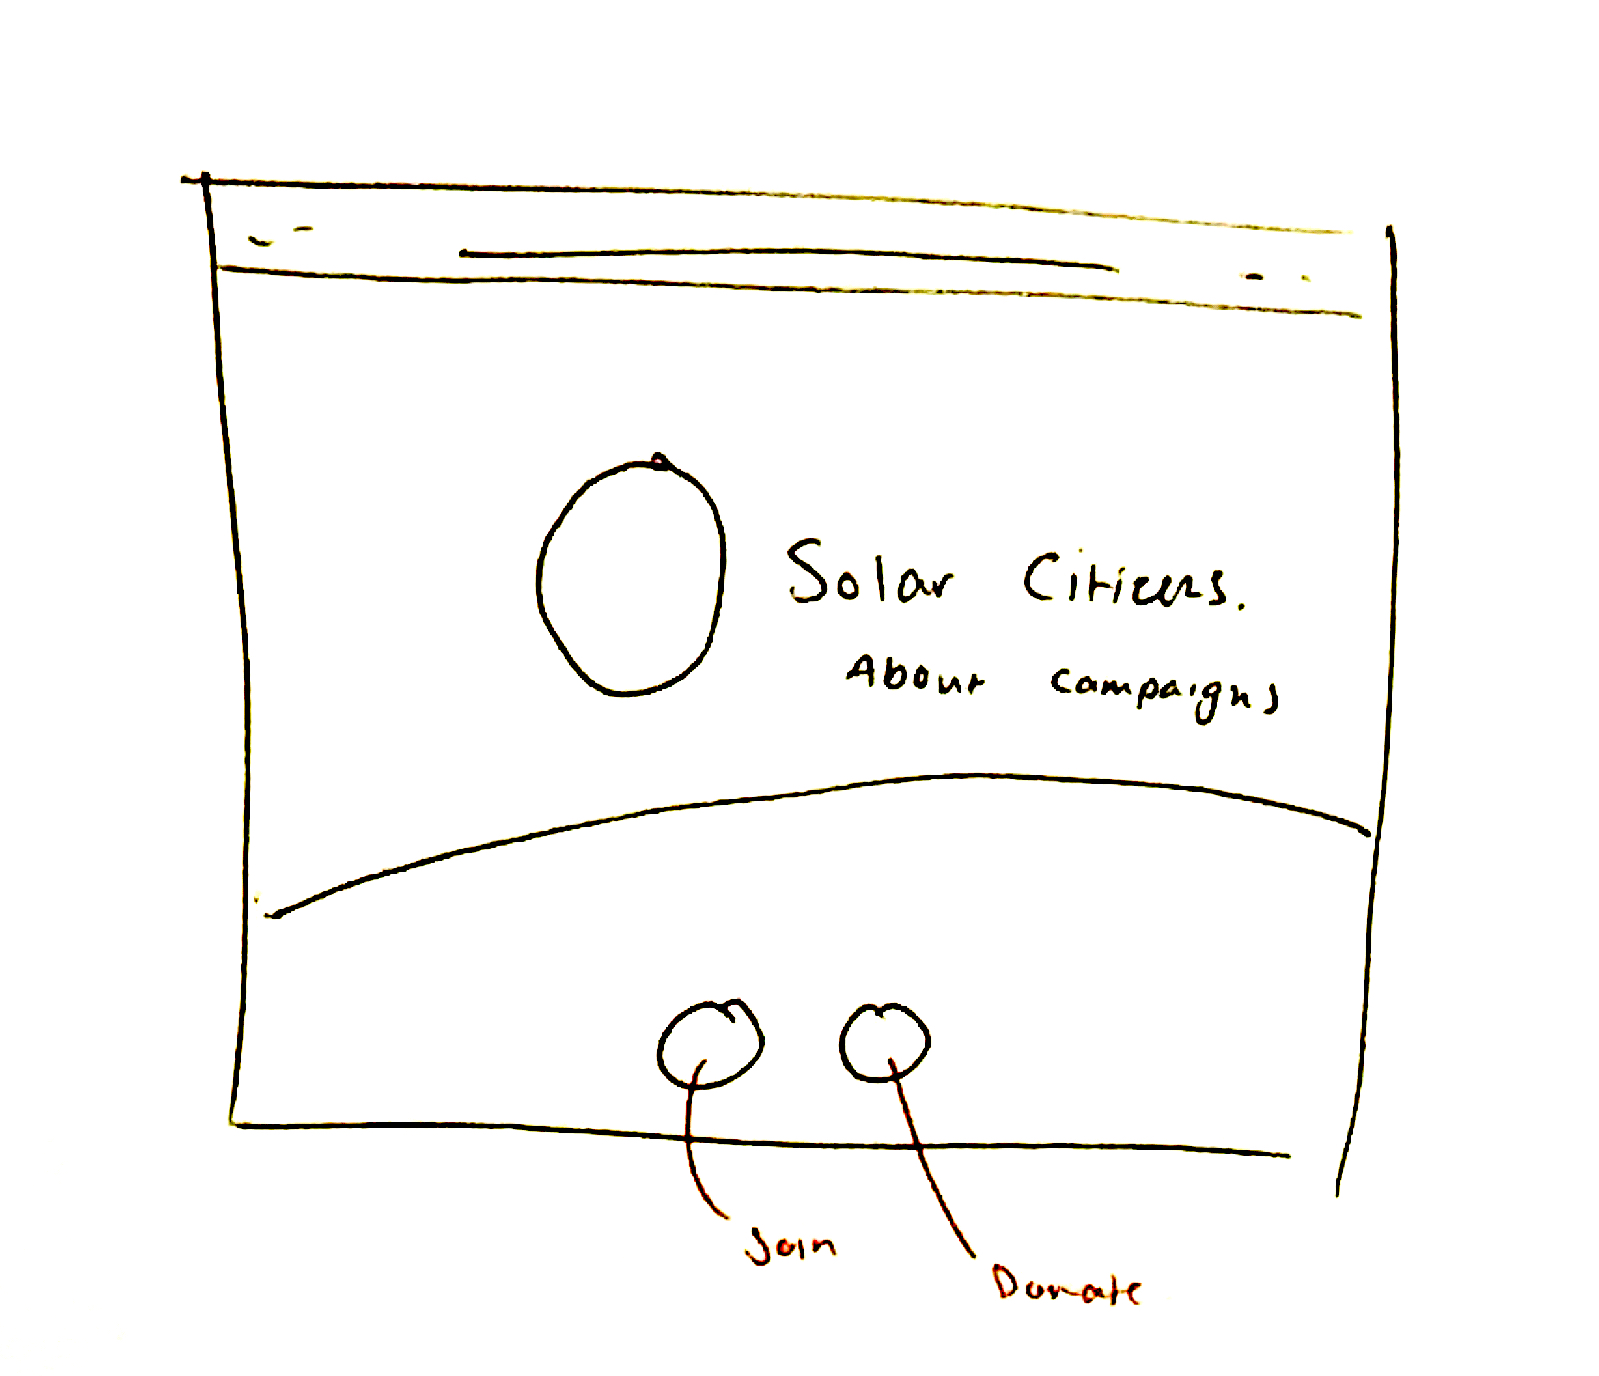 Solar Citizens.
About campaigns
Join
Donate